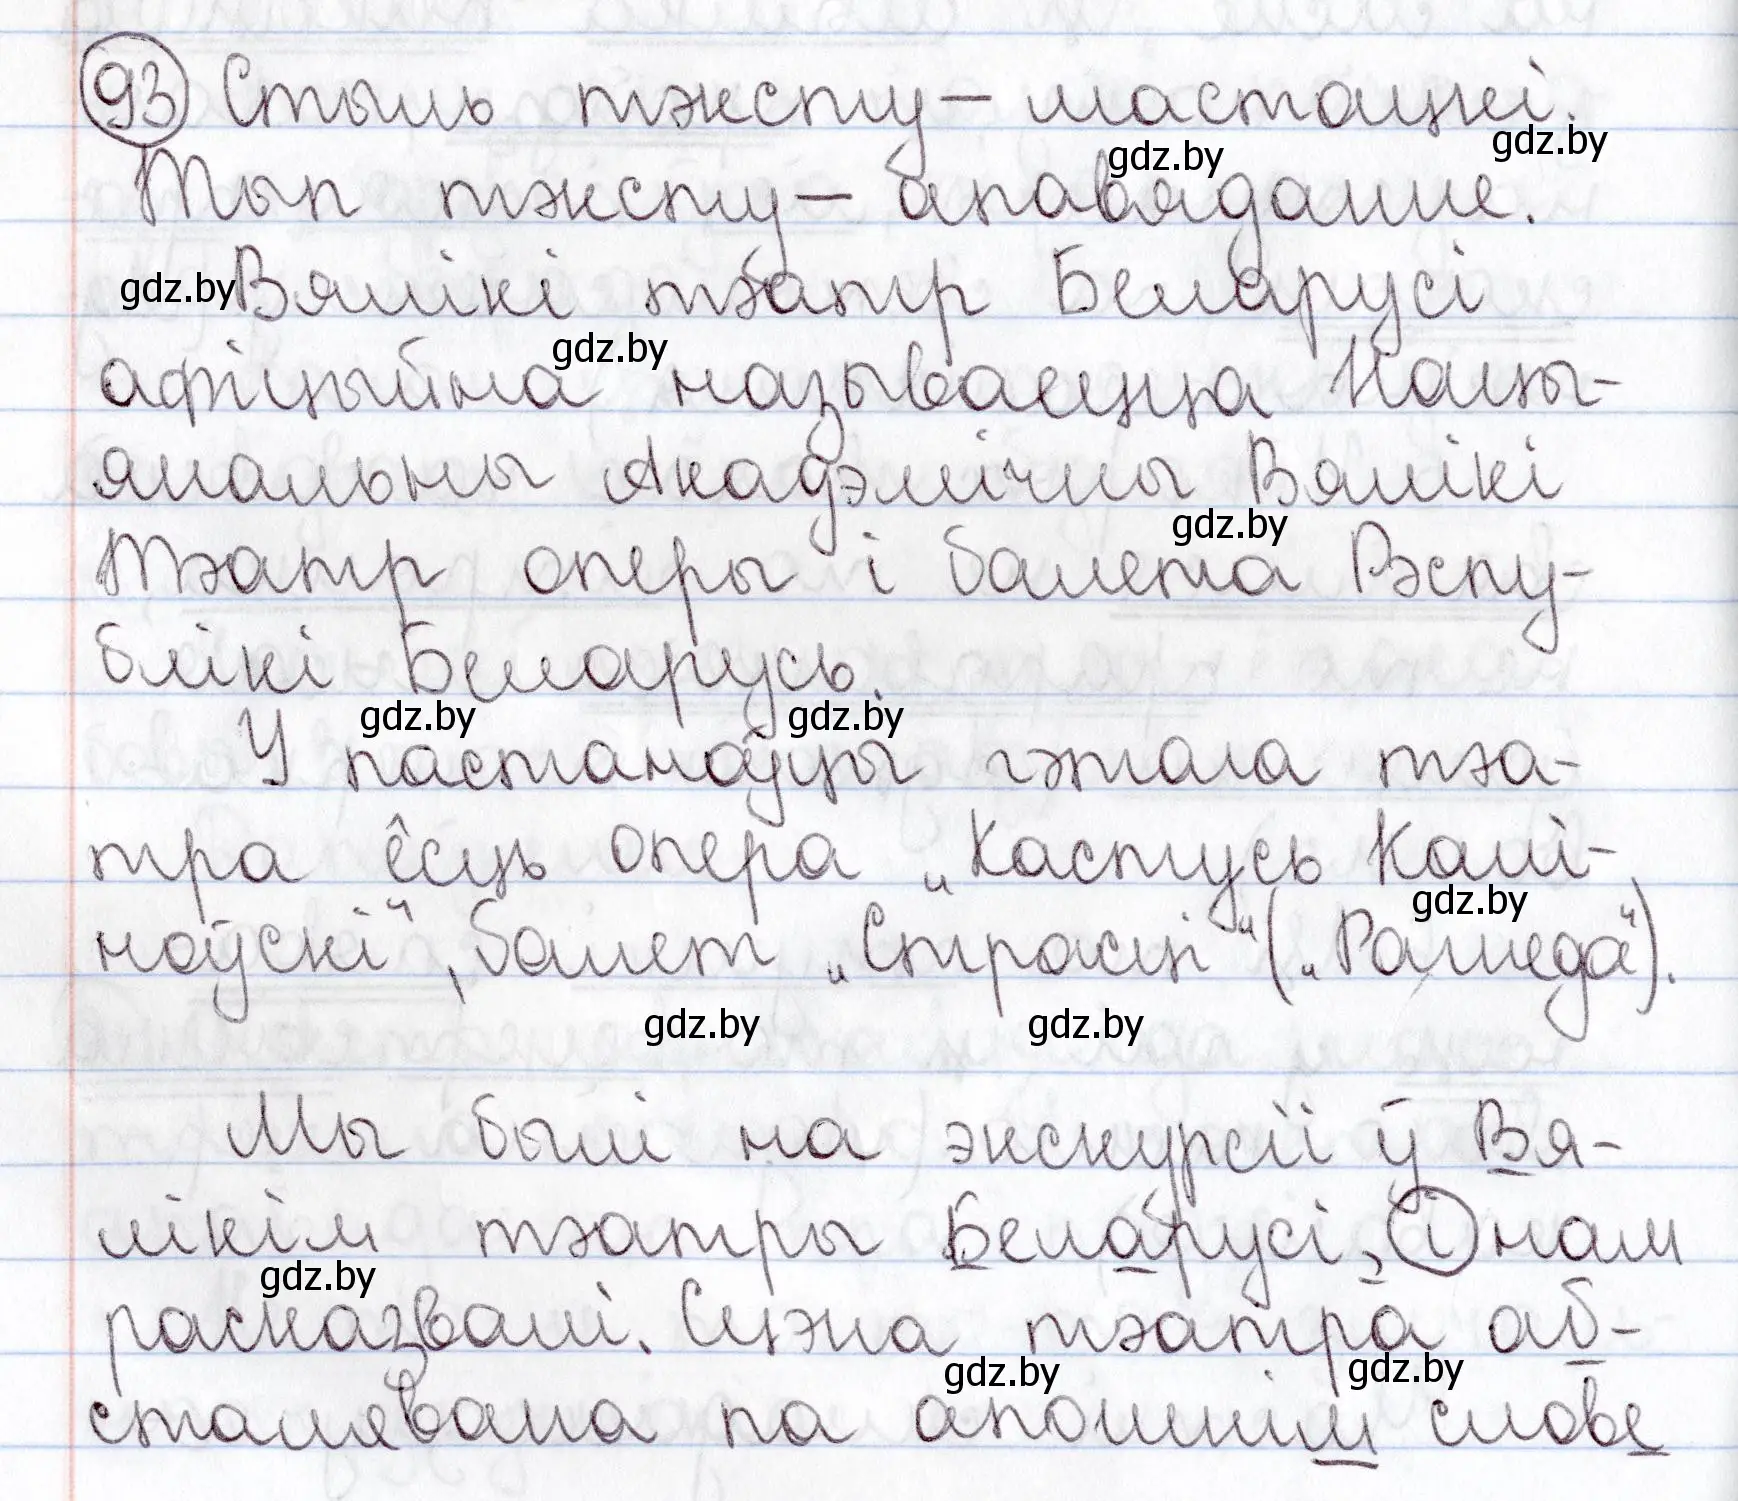 93 Стыль тэксту – мастацкі.
gdz.by gdz.by
Тып тэксту – апавяданне.
gdz.by Вялікі тэатр Беларусі
gdz.by
афіцыйна называецца Нацы-
янальны Акадэмічны Вялікі
gdz.by
Тэатр оперы і балета Рэспу-
блікі Беларусь.
gdz.by gdz.by
У пастаноўцы гэтага тэа-
тра ёсць опера „Кастусь Калі-
gdz.by
ноўскі“, балет „Страсці“ („Рагнеда“).
gdz.by gdz.by
Мы былі на экскурсіі ў Вя-
лікім тэатры Беларусі, і нам
gdz.by
расказвалі. Сцэна тэатра аб-
gdz.by gdz.by
сталявана па апошнім слове